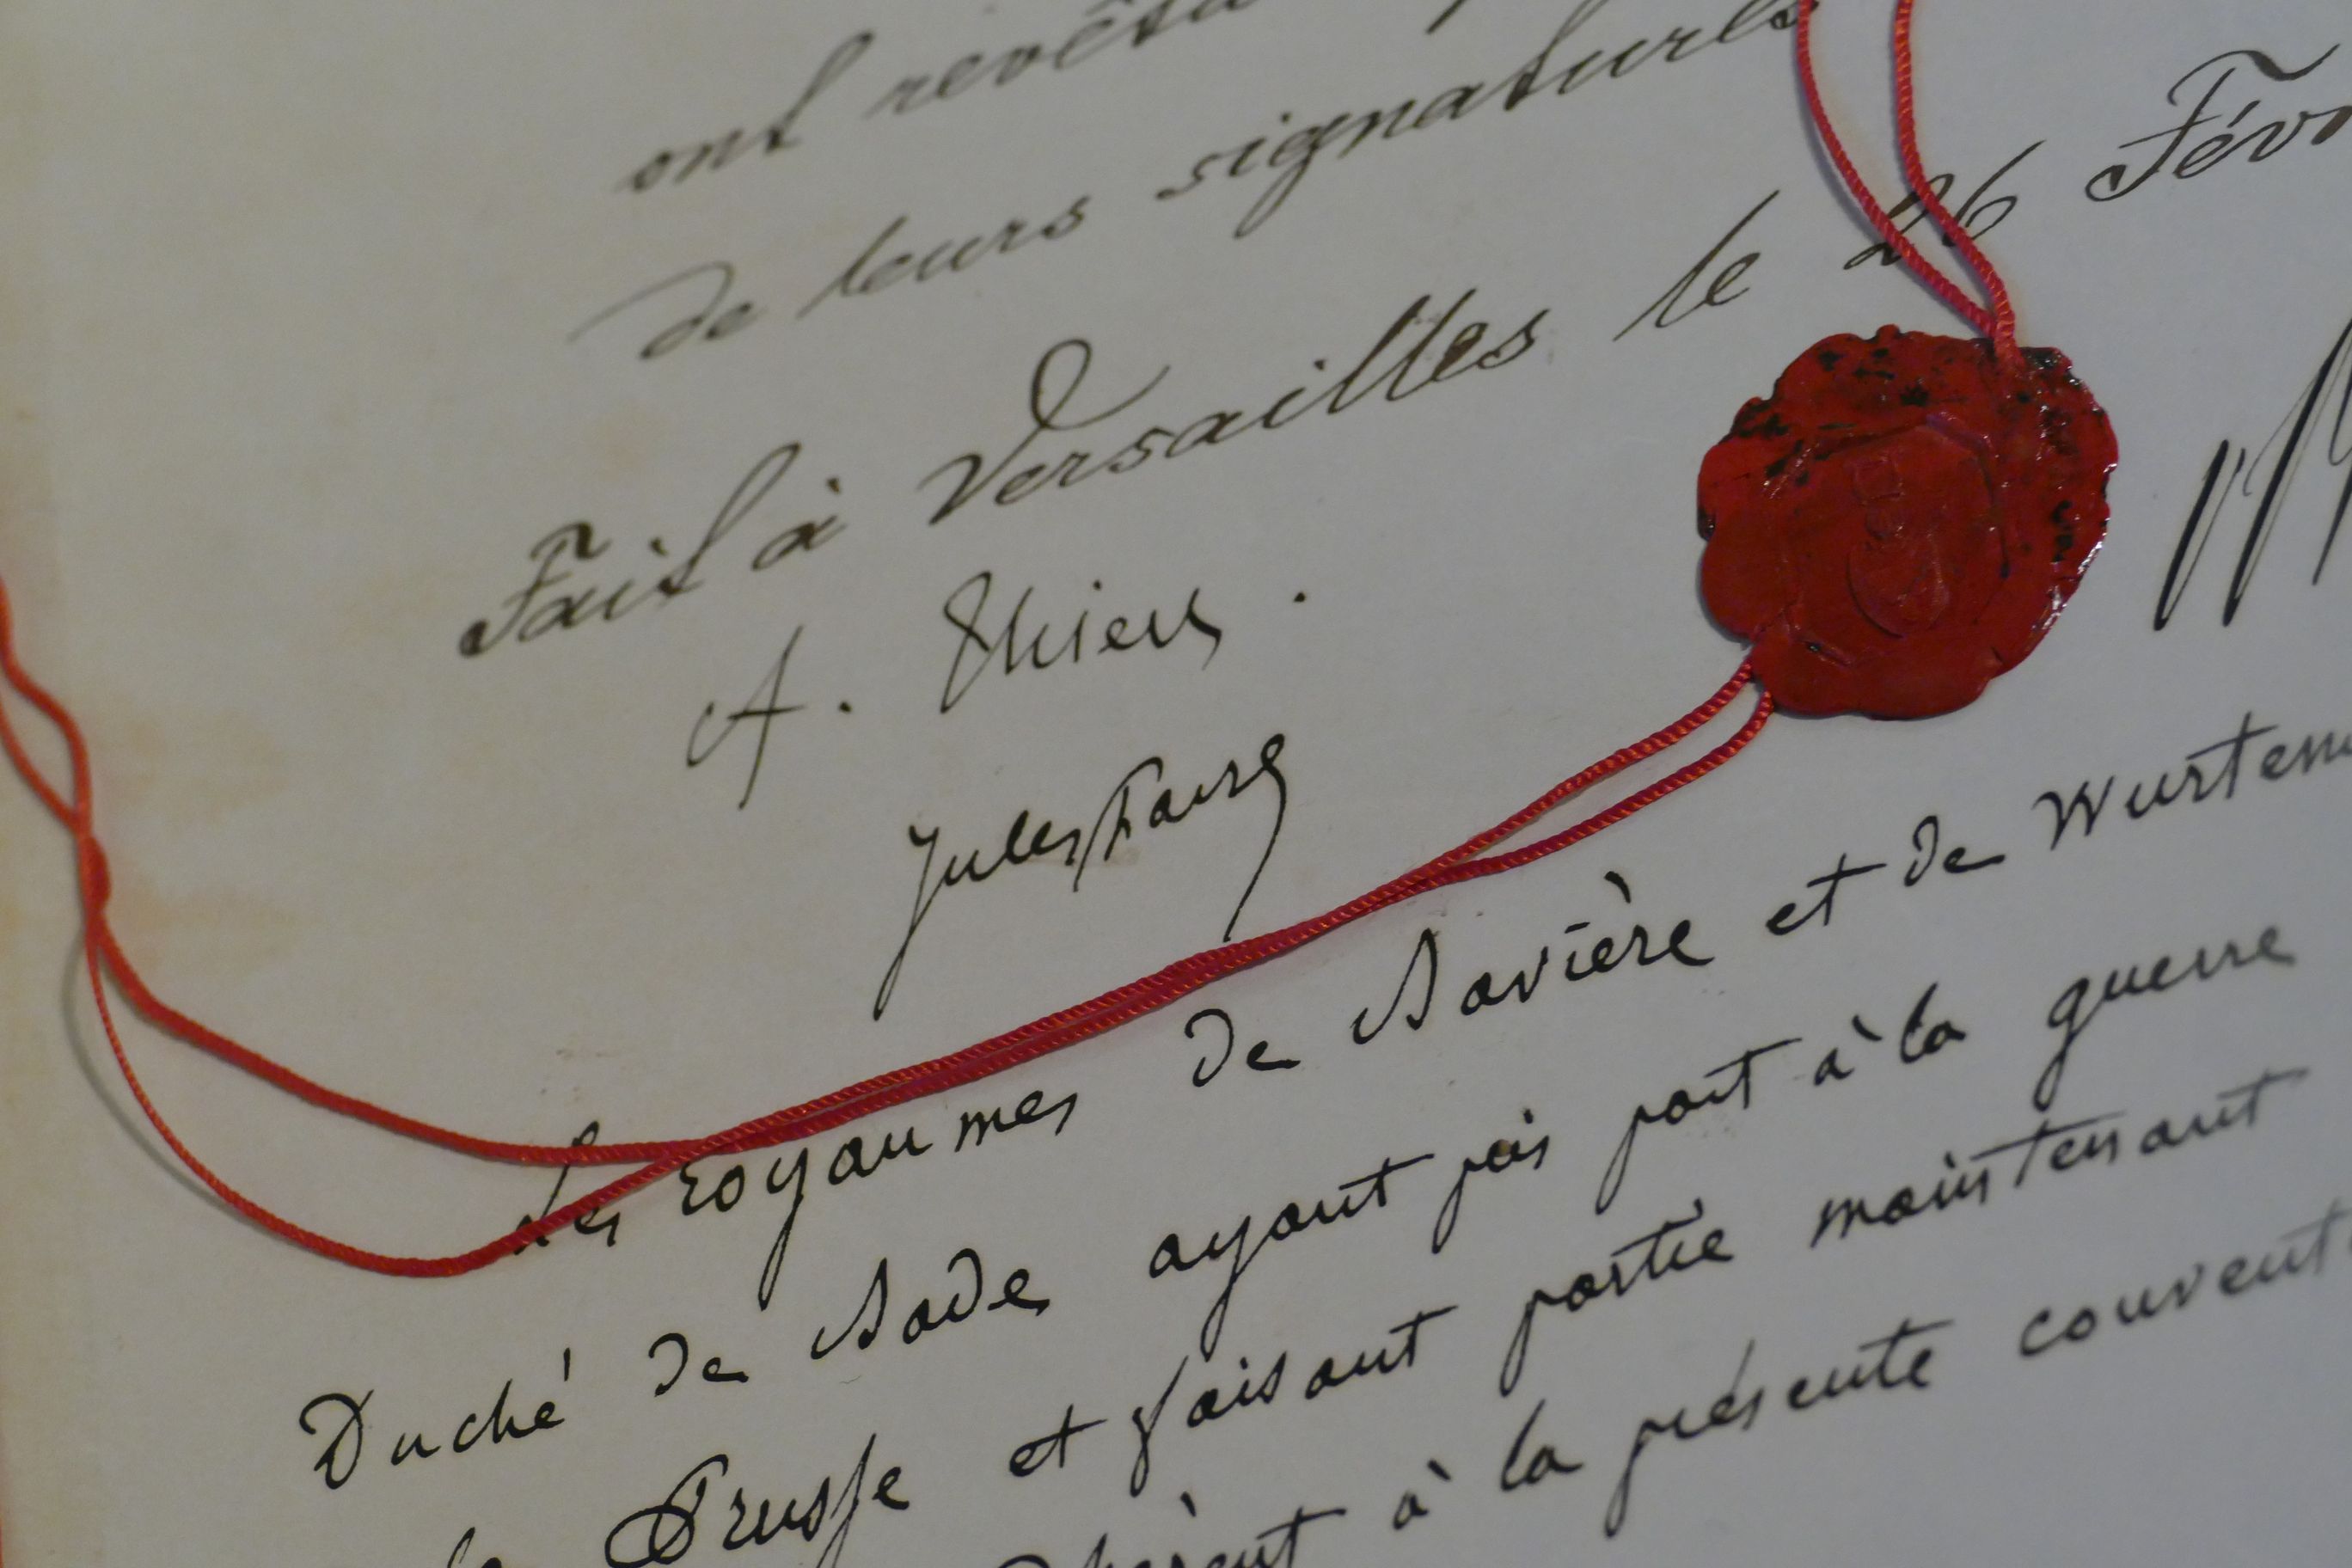 ont revêtu
de leurs signatures
Fait à Versailles le 26 Févr
A. Thiers.
Jules Favre
Les royaumes de Bavière et de Wurtem
Duché de Bade ayant pris part à la guerre
la Prusse et faisant partie maintenant
adhèrent à la présente convent